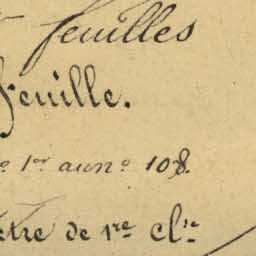 feuilles
feuille.
1er aune 108.
tre de 1re clse